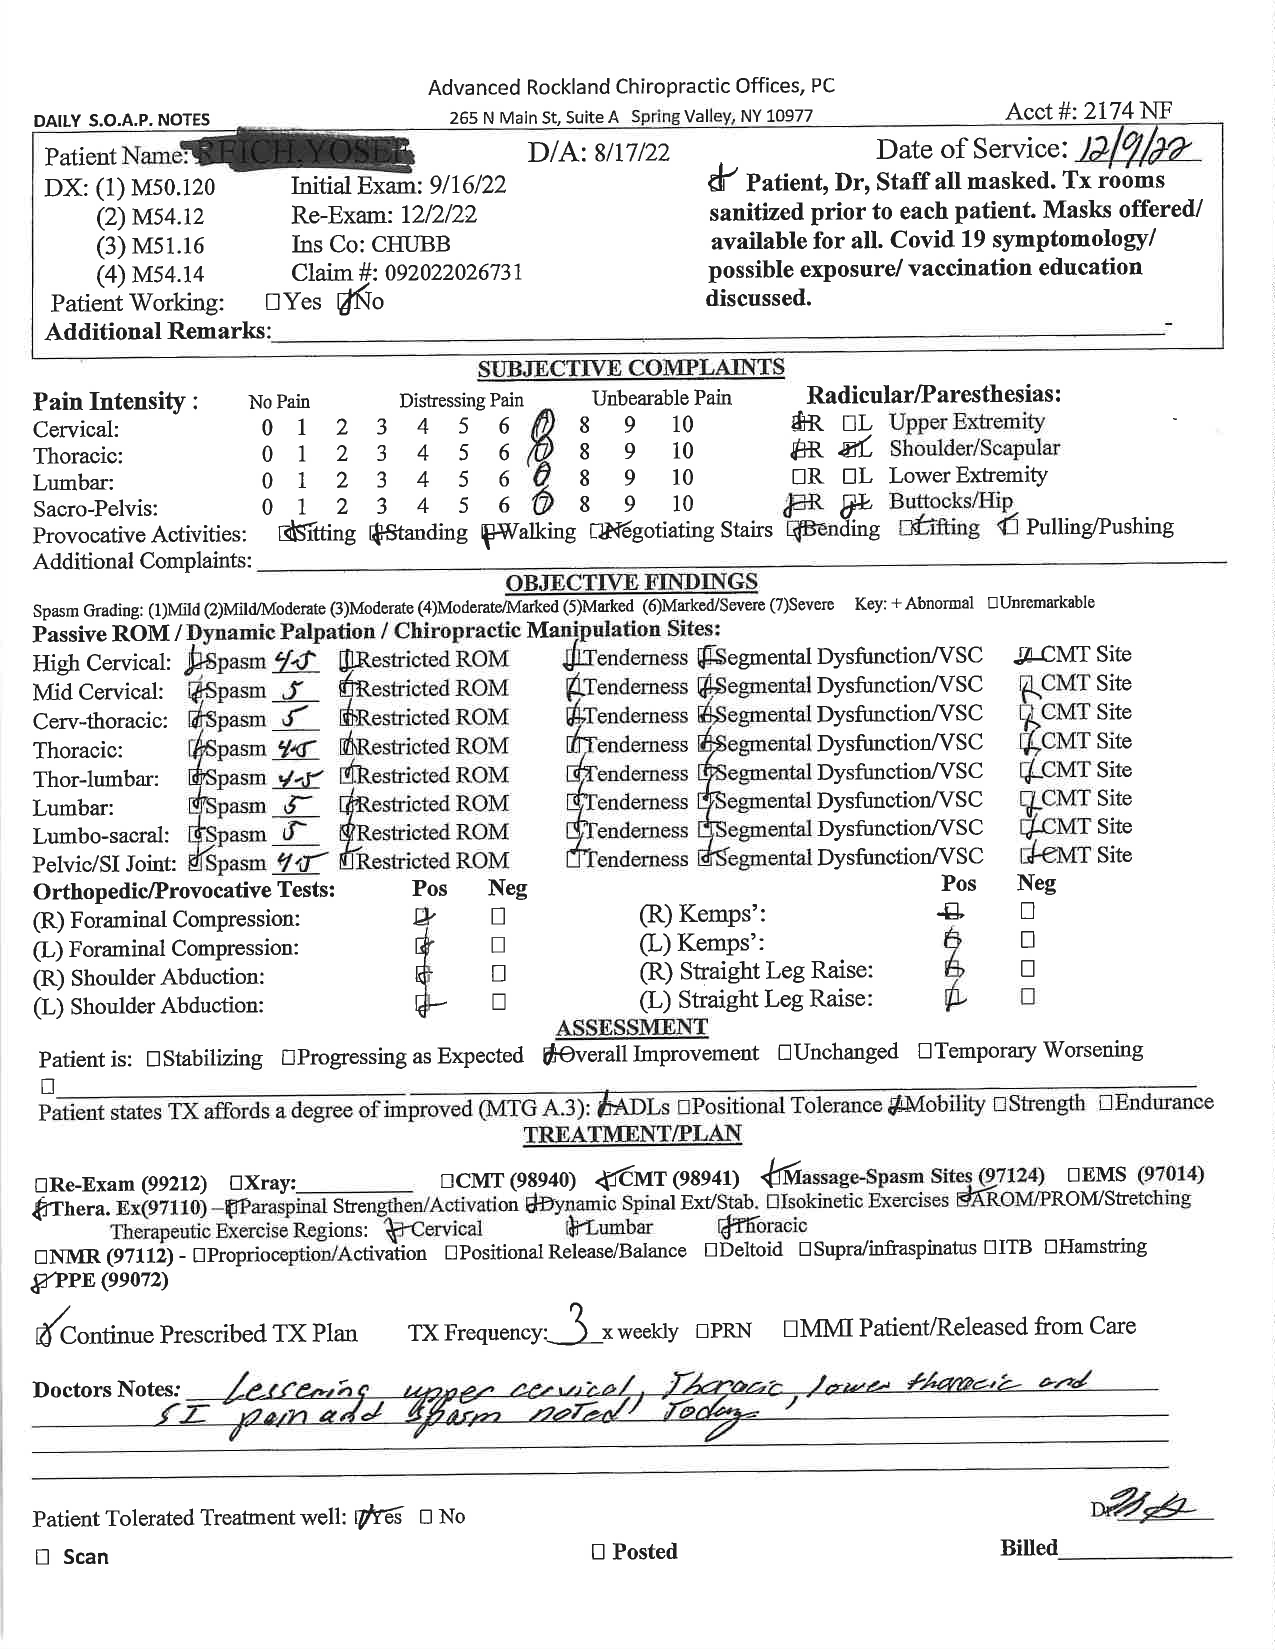 Advanced Rockland Chiropractic Offices, PC
DAILY S.O.A.P. NOTES 265 N Main St, Suite A Spring Valley, NY 10977 Acct #: 2174 NF
Patient Name: D/A: 8/17/22 Date of Service: 12/9/22
DX: (1) M50.120 Initial Exam: 9/16/22 Patient, Dr, Staff all masked. Tx rooms
(2) M54.12 Re-Exam: 12/2/22 sanitized prior to each patient. Masks offered/
(3) M51.16 Ins Co: CHUBB available for all. Covid 19 symptomology/
(4) M54.14 Claim #: 092022026731 possible exposure/ vaccination education
Patient Working: ☐Yes ☑No discussed.
Additional Remarks:
SUBJECTIVE COMPLAINTS
Pain Intensity : No Pain Distressing Pain Unbearable Pain Radicular/Paresthesias:
Cervical: 0 1 2 3 4 5 6 7 8 9 10 ☑R ☐L Upper Extremity
Thoracic: 0 1 2 3 4 5 6 7 8 9 10 ☑R ☑L Shoulder/Scapular
Lumbar: 0 1 2 3 4 5 6 7 8 9 10 ☐R ☐L Lower Extremity
Sacro-Pelvis: 0 1 2 3 4 5 6 7 8 9 10 ☑R ☑L Buttocks/Hip
Provocative Activities: ☑Sitting ☑Standing ☑Walking ☑Negotiating Stairs ☑Bending ☑Lifting ☑ Pulling/Pushing
Additional Complaints:
OBJECTIVE FINDINGS
Spasm Grading: (1)Mild (2)Mild/Moderate (3)Moderate (4)Moderate/Marked (5)Marked (6)Marked/Severe (7)Severe Key: + Abnormal ☐Unremarkable
Passive ROM / Dynamic Palpation / Chiropractic Manipulation Sites:
High Cervical: ☑Spasm 4-5 ☑Restricted ROM ☑Tenderness ☑Segmental Dysfunction/VSC ☑CMT Site
Mid Cervical: ☑Spasm 5 ☑Restricted ROM ☑Tenderness ☑Segmental Dysfunction/VSC ☑CMT Site
Cerv-thoracic: ☑Spasm 5 ☑Restricted ROM ☑Tenderness ☑Segmental Dysfunction/VSC ☑CMT Site
Thoracic: ☑Spasm 4-5 ☑Restricted ROM ☑Tenderness ☑Segmental Dysfunction/VSC ☑CMT Site
Thor-lumbar: ☑Spasm 4-5 ☑Restricted ROM ☑Tenderness ☑Segmental Dysfunction/VSC ☑CMT Site
Lumbar: ☑Spasm 5 ☑Restricted ROM ☑Tenderness ☑Segmental Dysfunction/VSC ☑CMT Site
Lumbo-sacral: ☑Spasm 5 ☑Restricted ROM ☑Tenderness ☑Segmental Dysfunction/VSC ☑CMT Site
Pelvic/SI Joint: ☑Spasm 4-5 ☑Restricted ROM ☑Tenderness ☑Segmental Dysfunction/VSC ☑CMT Site
Orthopedic/Provocative Tests: Pos Neg Pos Neg
(R) Foraminal Compression: ☑ ☐ (R) Kemps': ☑ ☐
(L) Foraminal Compression: ☑ ☐ (L) Kemps': ☑ ☐
(R) Shoulder Abduction: ☑ ☐ (R) Straight Leg Raise: ☑ ☐
(L) Shoulder Abduction: ☑ ☐ (L) Straight Leg Raise: ☑ ☐
ASSESSMENT
Patient is: ☐Stabilizing ☐Progressing as Expected ☑Overall Improvement ☐Unchanged ☐Temporary Worsening
☐
Patient states TX affords a degree of improved (MTG A.3): ☑ADLs ☐Positional Tolerance ☑Mobility ☐Strength ☐Endurance
TREATMENT/PLAN
☐Re-Exam (99212) ☐Xray: ☐CMT (98940) ☑CMT (98941) ☑Massage-Spasm Sites (97124) ☐EMS (97014)
☑Thera. Ex(97110) –☑Paraspinal Strengthen/Activation ☑Dynamic Spinal Ext/Stab. ☐Isokinetic Exercises ☑AROM/PROM/Stretching
Therapeutic Exercise Regions: ☑Cervical ☑Lumbar ☑Thoracic
☐NMR (97112) - ☐Proprioception/Activation ☐Positional Release/Balance ☐Deltoid ☐Supra/infraspinatus ☐ITB ☐Hamstring
☑PPE (99072)
☑Continue Prescribed TX Plan TX Frequency: 3 x weekly ☐PRN ☐MMI Patient/Released from Care
Doctors Notes: Lessening upper cervical, Thoracic, lower thoracic and
SI pain and spasm noted Today
Patient Tolerated Treatment well: ☑Yes ☐ No Dr
☐ Scan ☐ Posted Billed